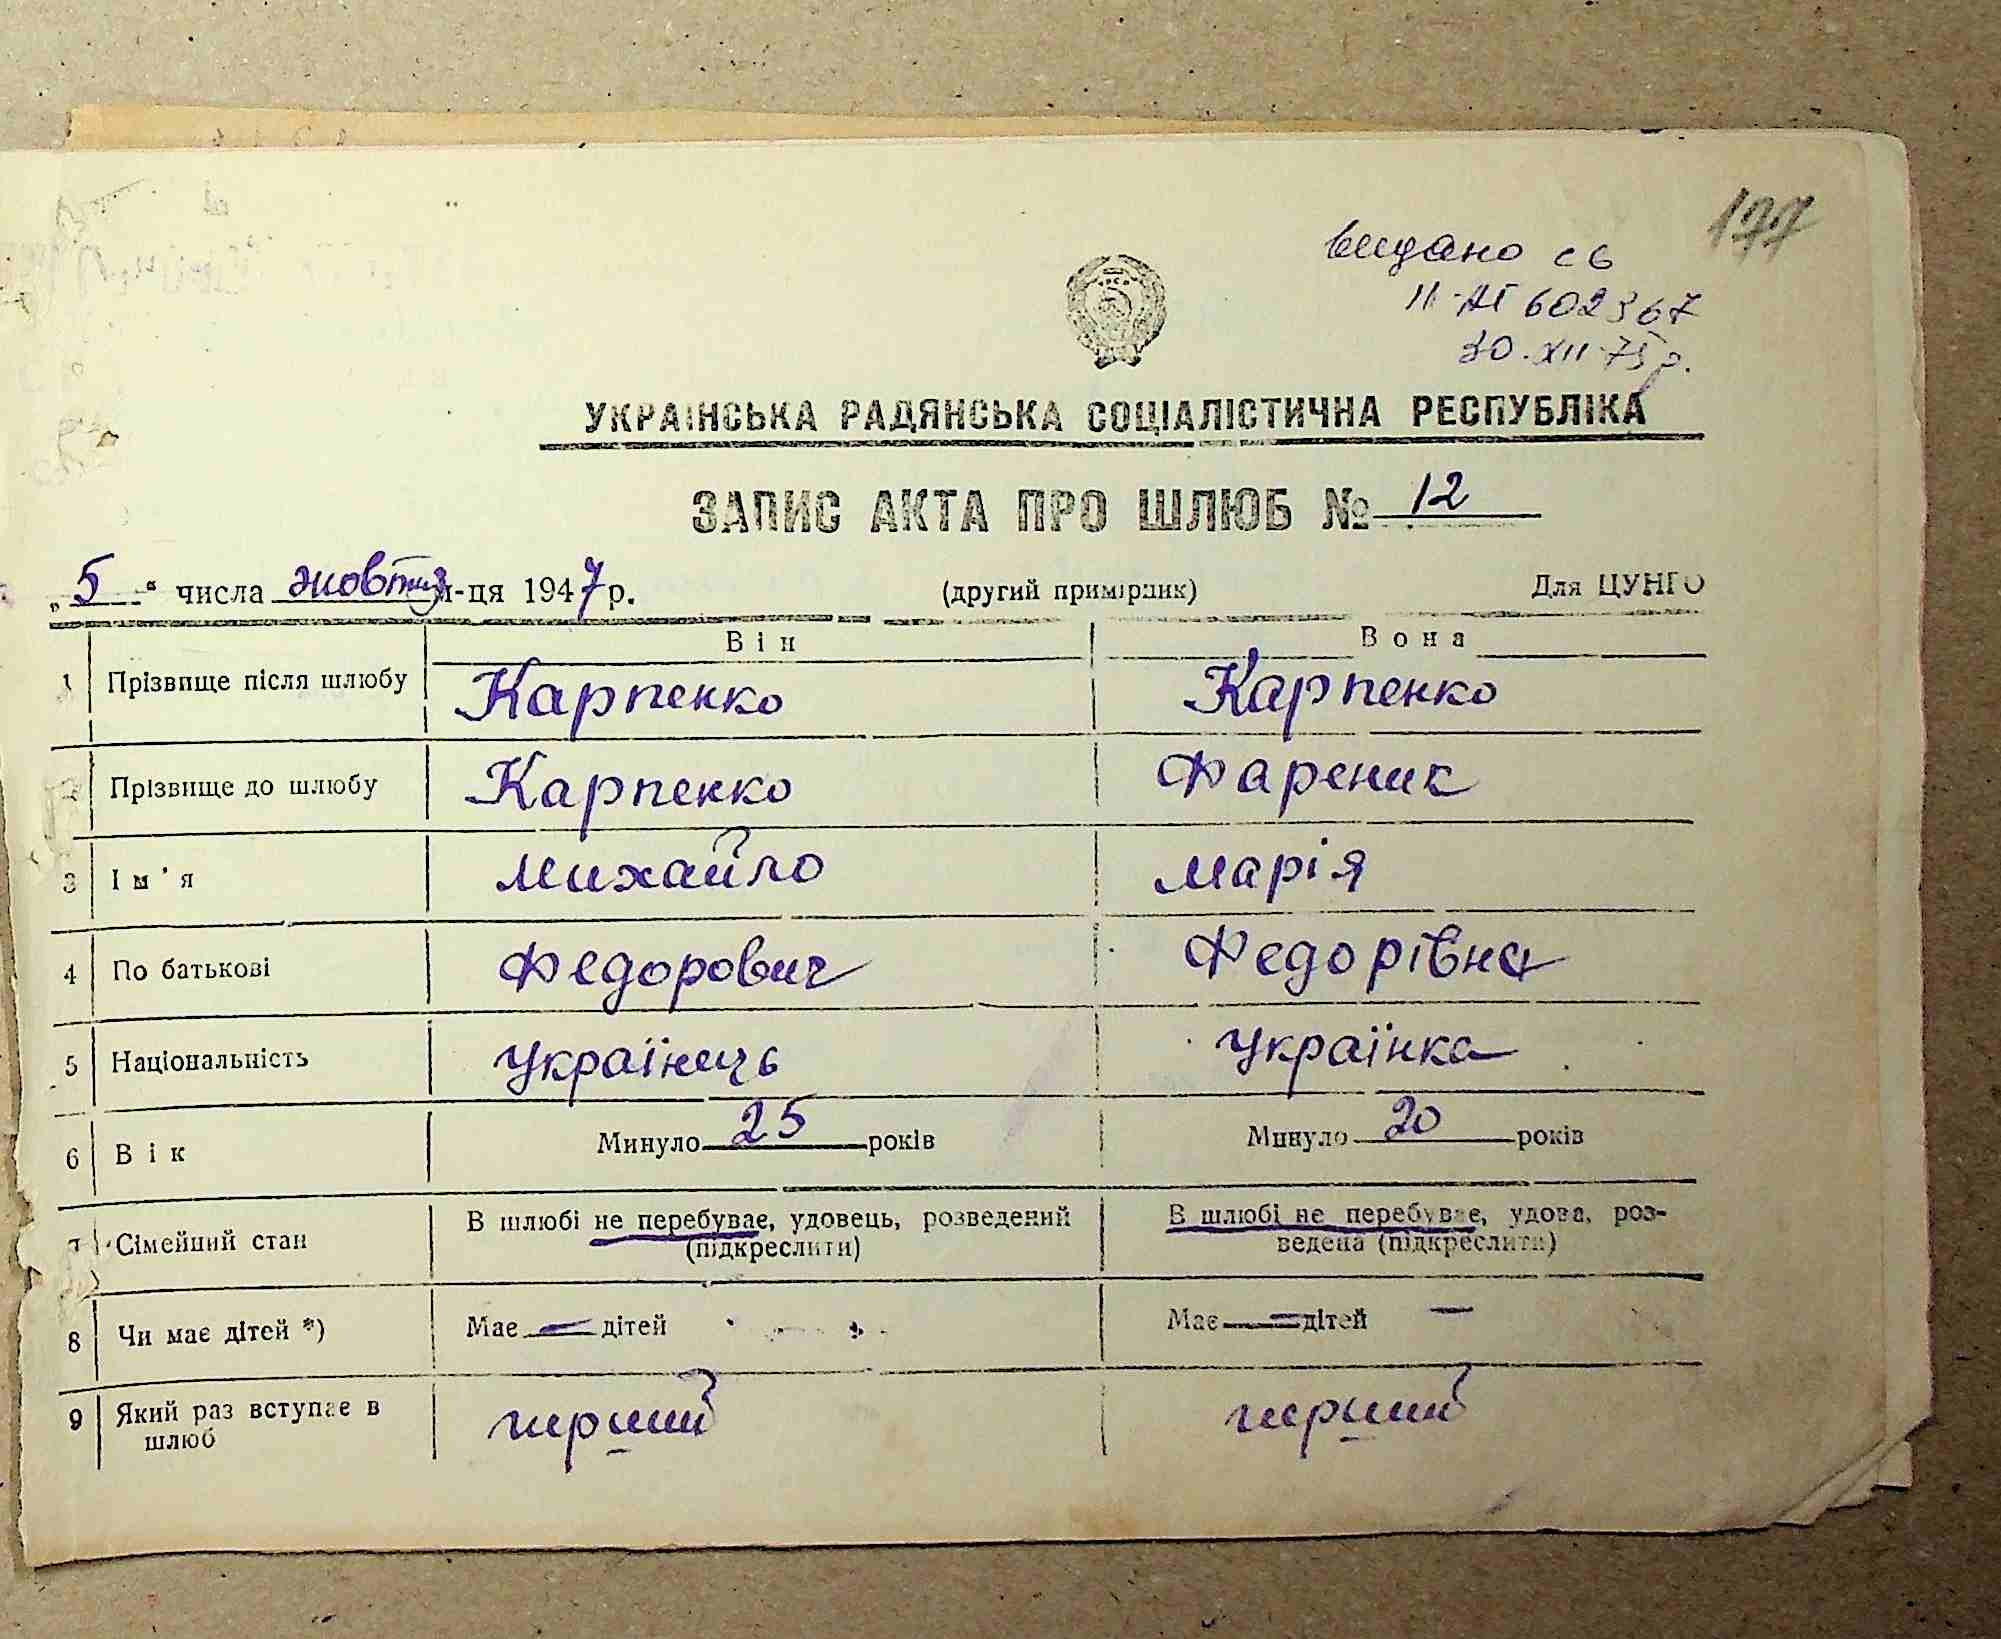 177
видано св
II-АГ 602367
30.XII.75 р.
УКРАЇНСЬКА РАДЯНСЬКА СОЦІАЛІСТИЧНА РЕСПУБЛІКА
ЗАПИС АКТА ПРО ШЛЮБ № 12
„5“ числа жовтня м-ця 1947 р. (другий примірник) Для ЦУНГО
Він Вона
1 Прізвище після шлюбу Карпенко Карпенко
2 Прізвище до шлюбу Карпенко Фареник
3 Ім'я Михайло Марія
4 По батькові Федорович Федорівна
5 Національність українець українка
6 Вік Минуло 25 років Минуло 20 років
7 Сімейний стан В шлюбі не перебуває, удовець, розведений В шлюбі не перебуває, удова, роз-
(підкреслити) ведена (підкреслити)
8 Чи має дітей *) Має — дітей Має — дітей —
9 Який раз вступає в перший перший
шлюб